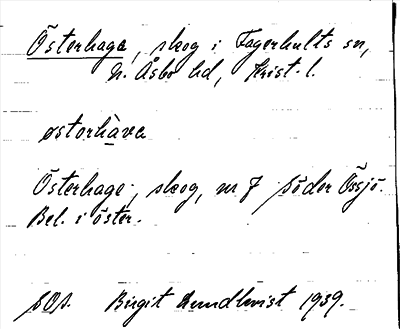 Österhage, skog i Fagerhults sn,
N. Åsbo hd, Krist. l.
østorhàva
Österhage, skog, nr 7 söder Össjö.
Bel. i öster.
Birgit Lundkvist 1939.